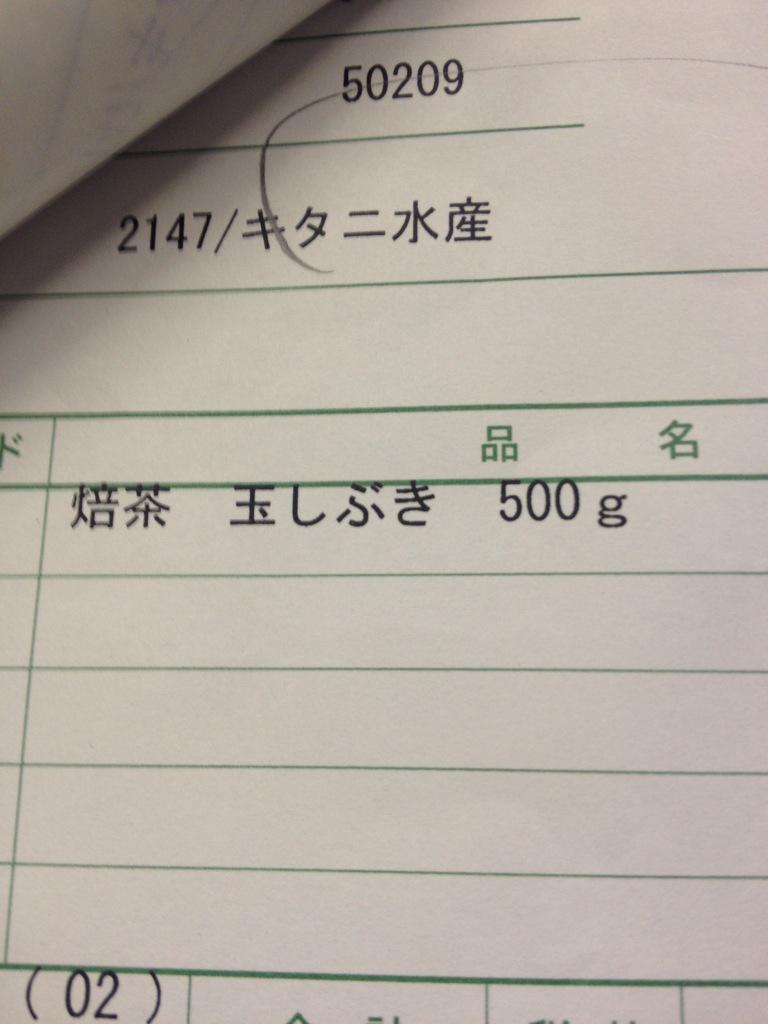 50209
2147/キタニ水産
品 名
焙茶 玉しぶき 500g
(02)